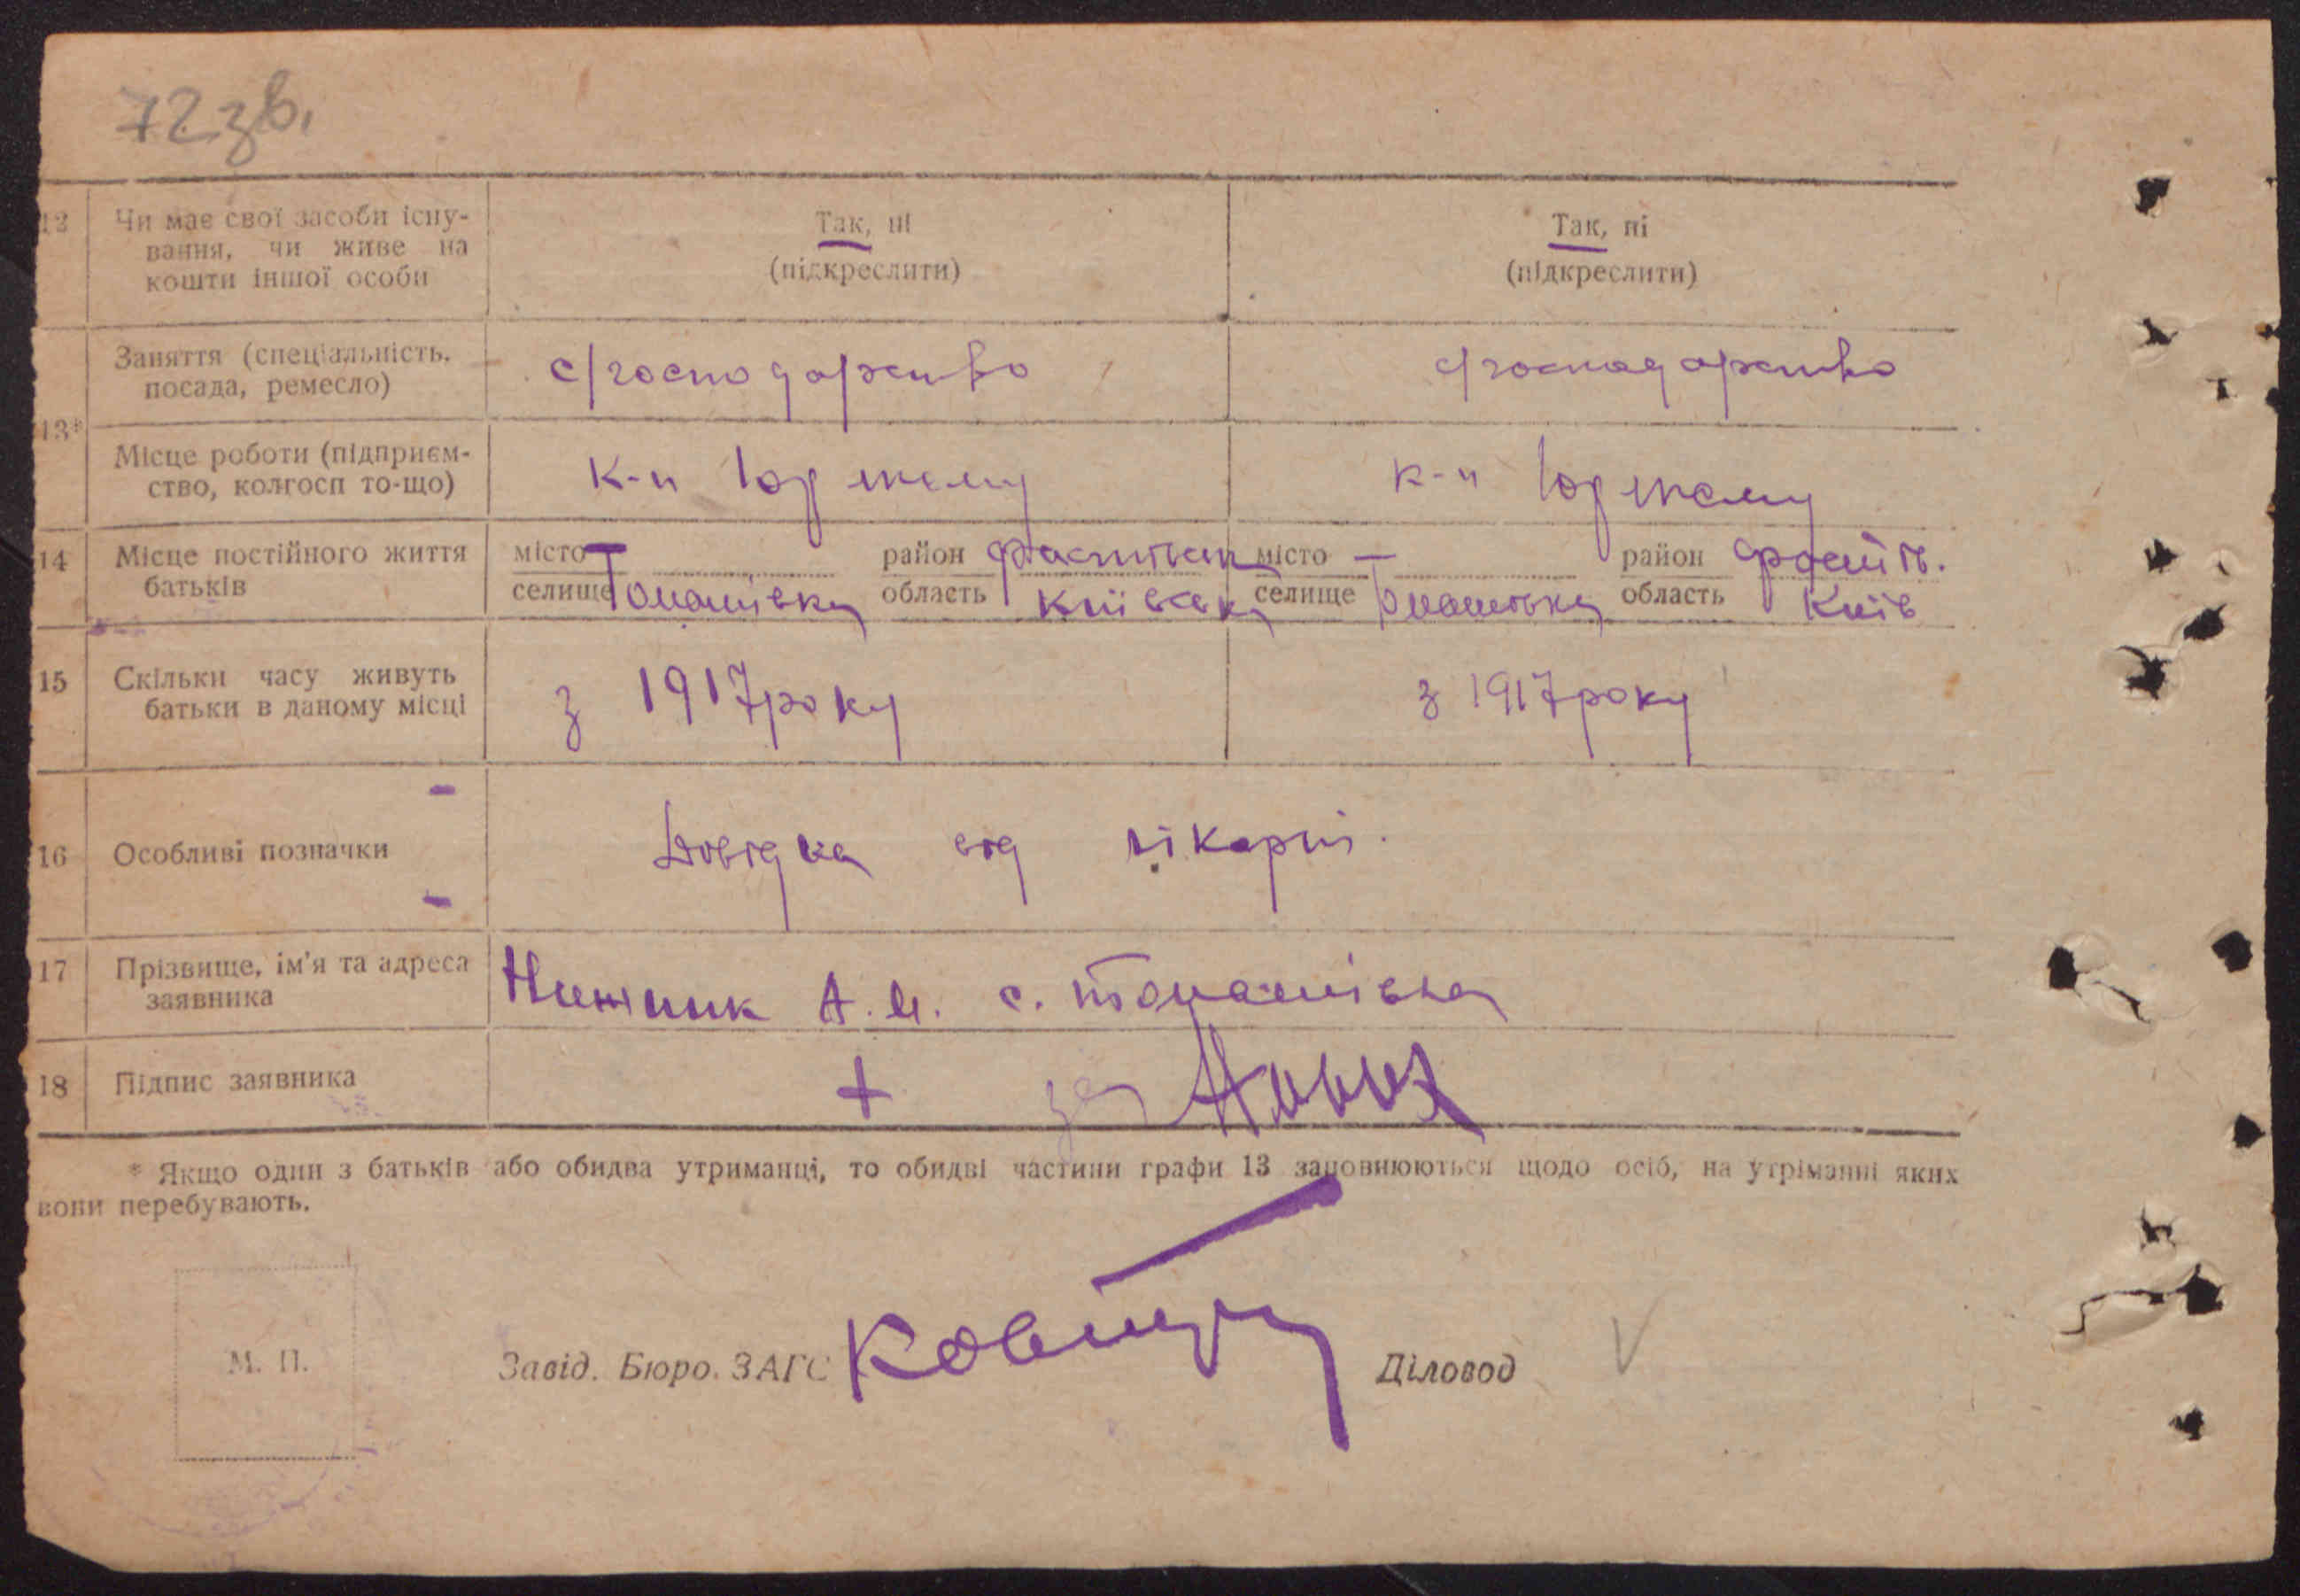 72 зв.
12 Чи має свої засоби існу-
вання, чи живе на
кошти іншої особи
Так, ні
(підкреслити)
Так, ні
(підкреслити)
13*
Заняття (спеціальність.
посада, ремесло)
с/господарство
с/господарство
Місце роботи (підприєм-
ство, колгосп то-що)
к-п
к-п
14 Місце постійного життя
батьків
місто — район Фастівськ
селище Томашівка область Київська
місто — район Фастів.
селище Томашівка область Київ
15 Скільки часу живуть
батьки в даному місці
з 1917 року
з 1917 року
16 Особливі позначки
Довідка від лікарні.
17 Прізвище, ім'я та адреса
заявника
Нижник А. И. с. Томашівка
18 Підпис заявника
+ за
* Якщо один з батьків або обидва утриманці, то обидві частини графи 13 заповнюються щодо осіб, на утріманні яких
вони перебувають.
М. П.
Завід. Бюро. ЗАГС
Діловод V